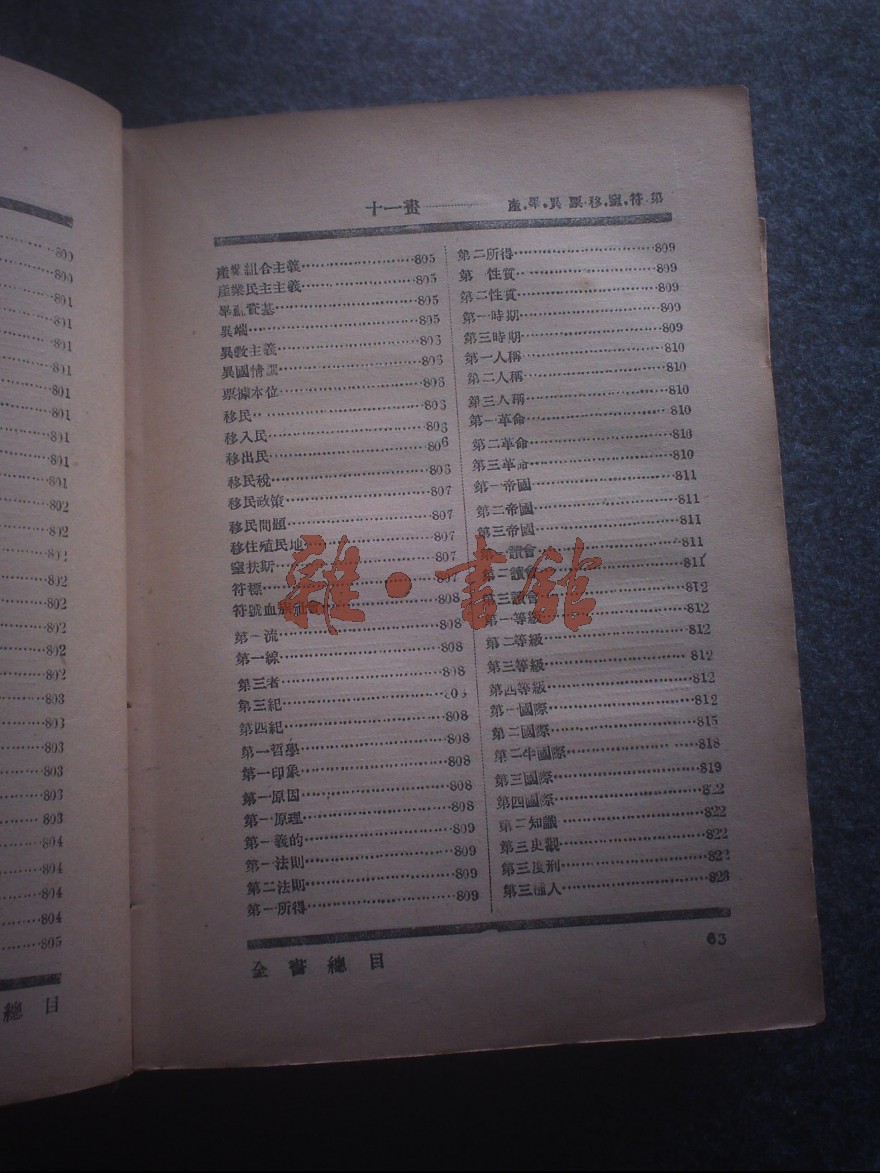 809
800
801
801
801
801
801
801
801
801
801
802
802
802
802
802
802
802
803
803
803
803
803
803
804
804
804
804
805
總 目
十一畫············產.畢.異.票.移.窒.符.第
產業組合主義············805
產業民主主義············805
畢氪資基············805
異端············805
異教主義············806
異國情調············806
票據本位············806
移民············806
移入民············806
移出民············806
移民稅············806
移民政策············807
移民問題············807
移住殖民地············807
窒扶斯············807
符標············807
符號············808
第一流············808
第一線············808
第三者············808
第三紀············808
第四紀············808
第一哲學············808
第一印象············808
第一原因············808
第一原理············808
第一義的············809
第一法則············809
第二法則············809
第一所得············809
第二所得············809
第一性質············809
第二性質············809
第一時期············809
第三時期············809
第一人稱············810
第二人稱············810
第三人稱············810
第一革命············810
第二革命············810
第三革命············810
第一帝國············811
第二帝國············811
第三帝國············811
第一讀會············811
第二讀會············811
第三讀會············812
第一等級············812
第二等級············812
第三等級············812
第四等級············812
第一國際············812
第二國際············815
第二半國際············818
第三國際············819
第四國際············822
第二知識············822
第三史觀············822
第三度刑············822
第三種人············823
全書總目
63
雜·書館